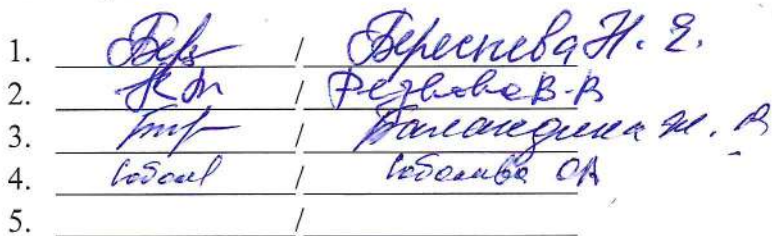 1. / Береснева Н. Е.
2. / Резвова В-В
3. / Баландина Ж. В
4. Собол / Соболева ОВ
5. /